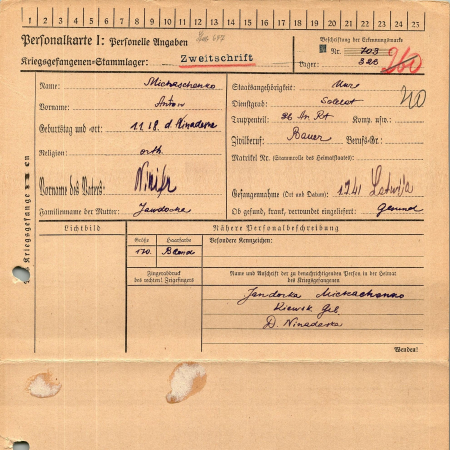 1 2 3 4 5 6 7 8 9 10 11 12 13 14 15 16 17 18 19 20 21 22 23 24 25
Personalkarte I: Personelle Angaben
Kriegsgefangenen-Stammlager: Zweitschrift
Beschriftung der Erkennungsmarke
Nr. 703
Lager: 326
260
Name: Michaschenko
Vorname: Anton
Geburtstag und -ort: 1.1.18. d. Ninadewka
Religion: orth.
Vorname des Vaters: Nikifor
Familienname der Mutter: Jawdocha
Staatsangehörigkeit: Ukre
Dienstgrad: Soldat
Truppenteil: 86 An. Rt Komp. usw.:
Zivilberuf: Bauer Berufs-Gr.:
Matrikel Nr. (Stammrolle des Heimatstaates):
Gefangennahme (Ort und Datum): 1941 Letwija
Ob gesund, krank, verwundet eingeliefert: Gesund
Kriegsgefangenen
Lichtbild
Nähere Personalbeschreibung
Größe Haarfarbe Besondere Kennzeichen:
170. Blond
Fingerabdruck
des rechten! Zeigefingers
Name und Anschrift der zu benachrichtigenden Person in der Heimat
des Kriegsgefangenen
Jandocka Michaschenko
Kiewsk. Geb.
D. Ninadewka
Wenden!